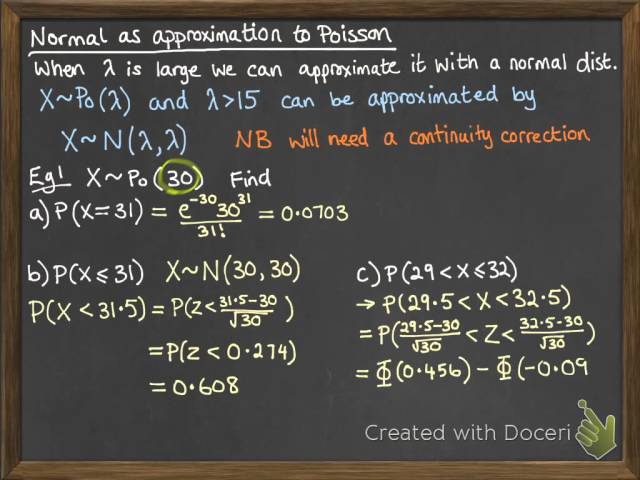 Normal as approximation to Poisson
When λ is large we can approximate it with a normal dist.
X~Po(λ) and λ>15 can be approximated by
X~N(λ,λ) NB will need a continuity correction
Eg1 X~Po(30) Find
a) P(X=31) = e^-30 30^31 / 31! = 0.0703
b) P(X≤31) X~N(30,30)
P(X<31.5) = P(Z<31.5-30/√30)
= P(Z<0.274)
= 0.608
c) P(29<X≤32)
→ P(29.5<X<32.5)
= P(29.5-30/√30 < Z < 32.5-30/√30)
= Φ(0.456) - Φ(-0.09
Created with Doceri